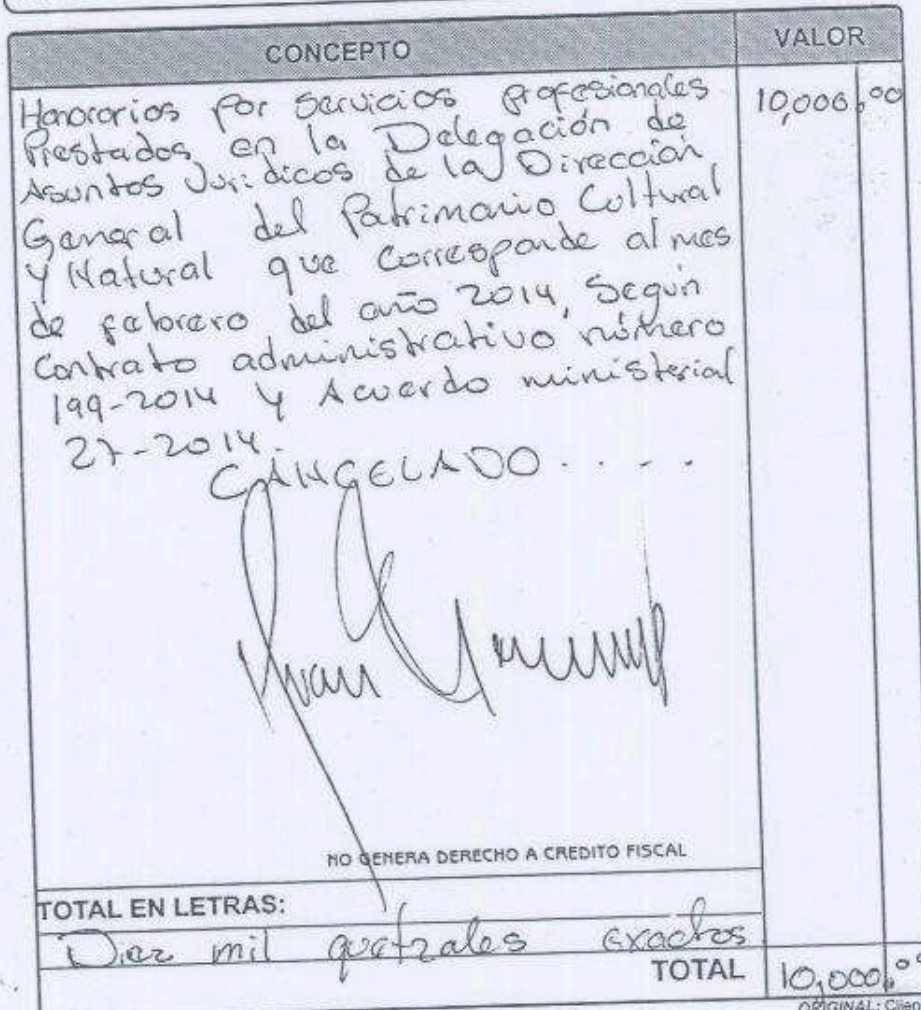 CONCEPTO
VALOR
Honorarios por servicios profesionales
Prestados en la Delegación de
Asuntos Jurídicos de la Dirección
General del Patrimonio Cultural
y Natural que corresponde al mes
de febrero del año 2014, Según
Contrato administrativo número
199-2014 y Acuerdo ministerial
27-2014.
10,000.00
CANCELADO . . . .
NO GENERA DERECHO A CREDITO FISCAL
TOTAL EN LETRAS:
Diez mil quetzales exactos
TOTAL
10,000.00
ORIGINAL: Clien